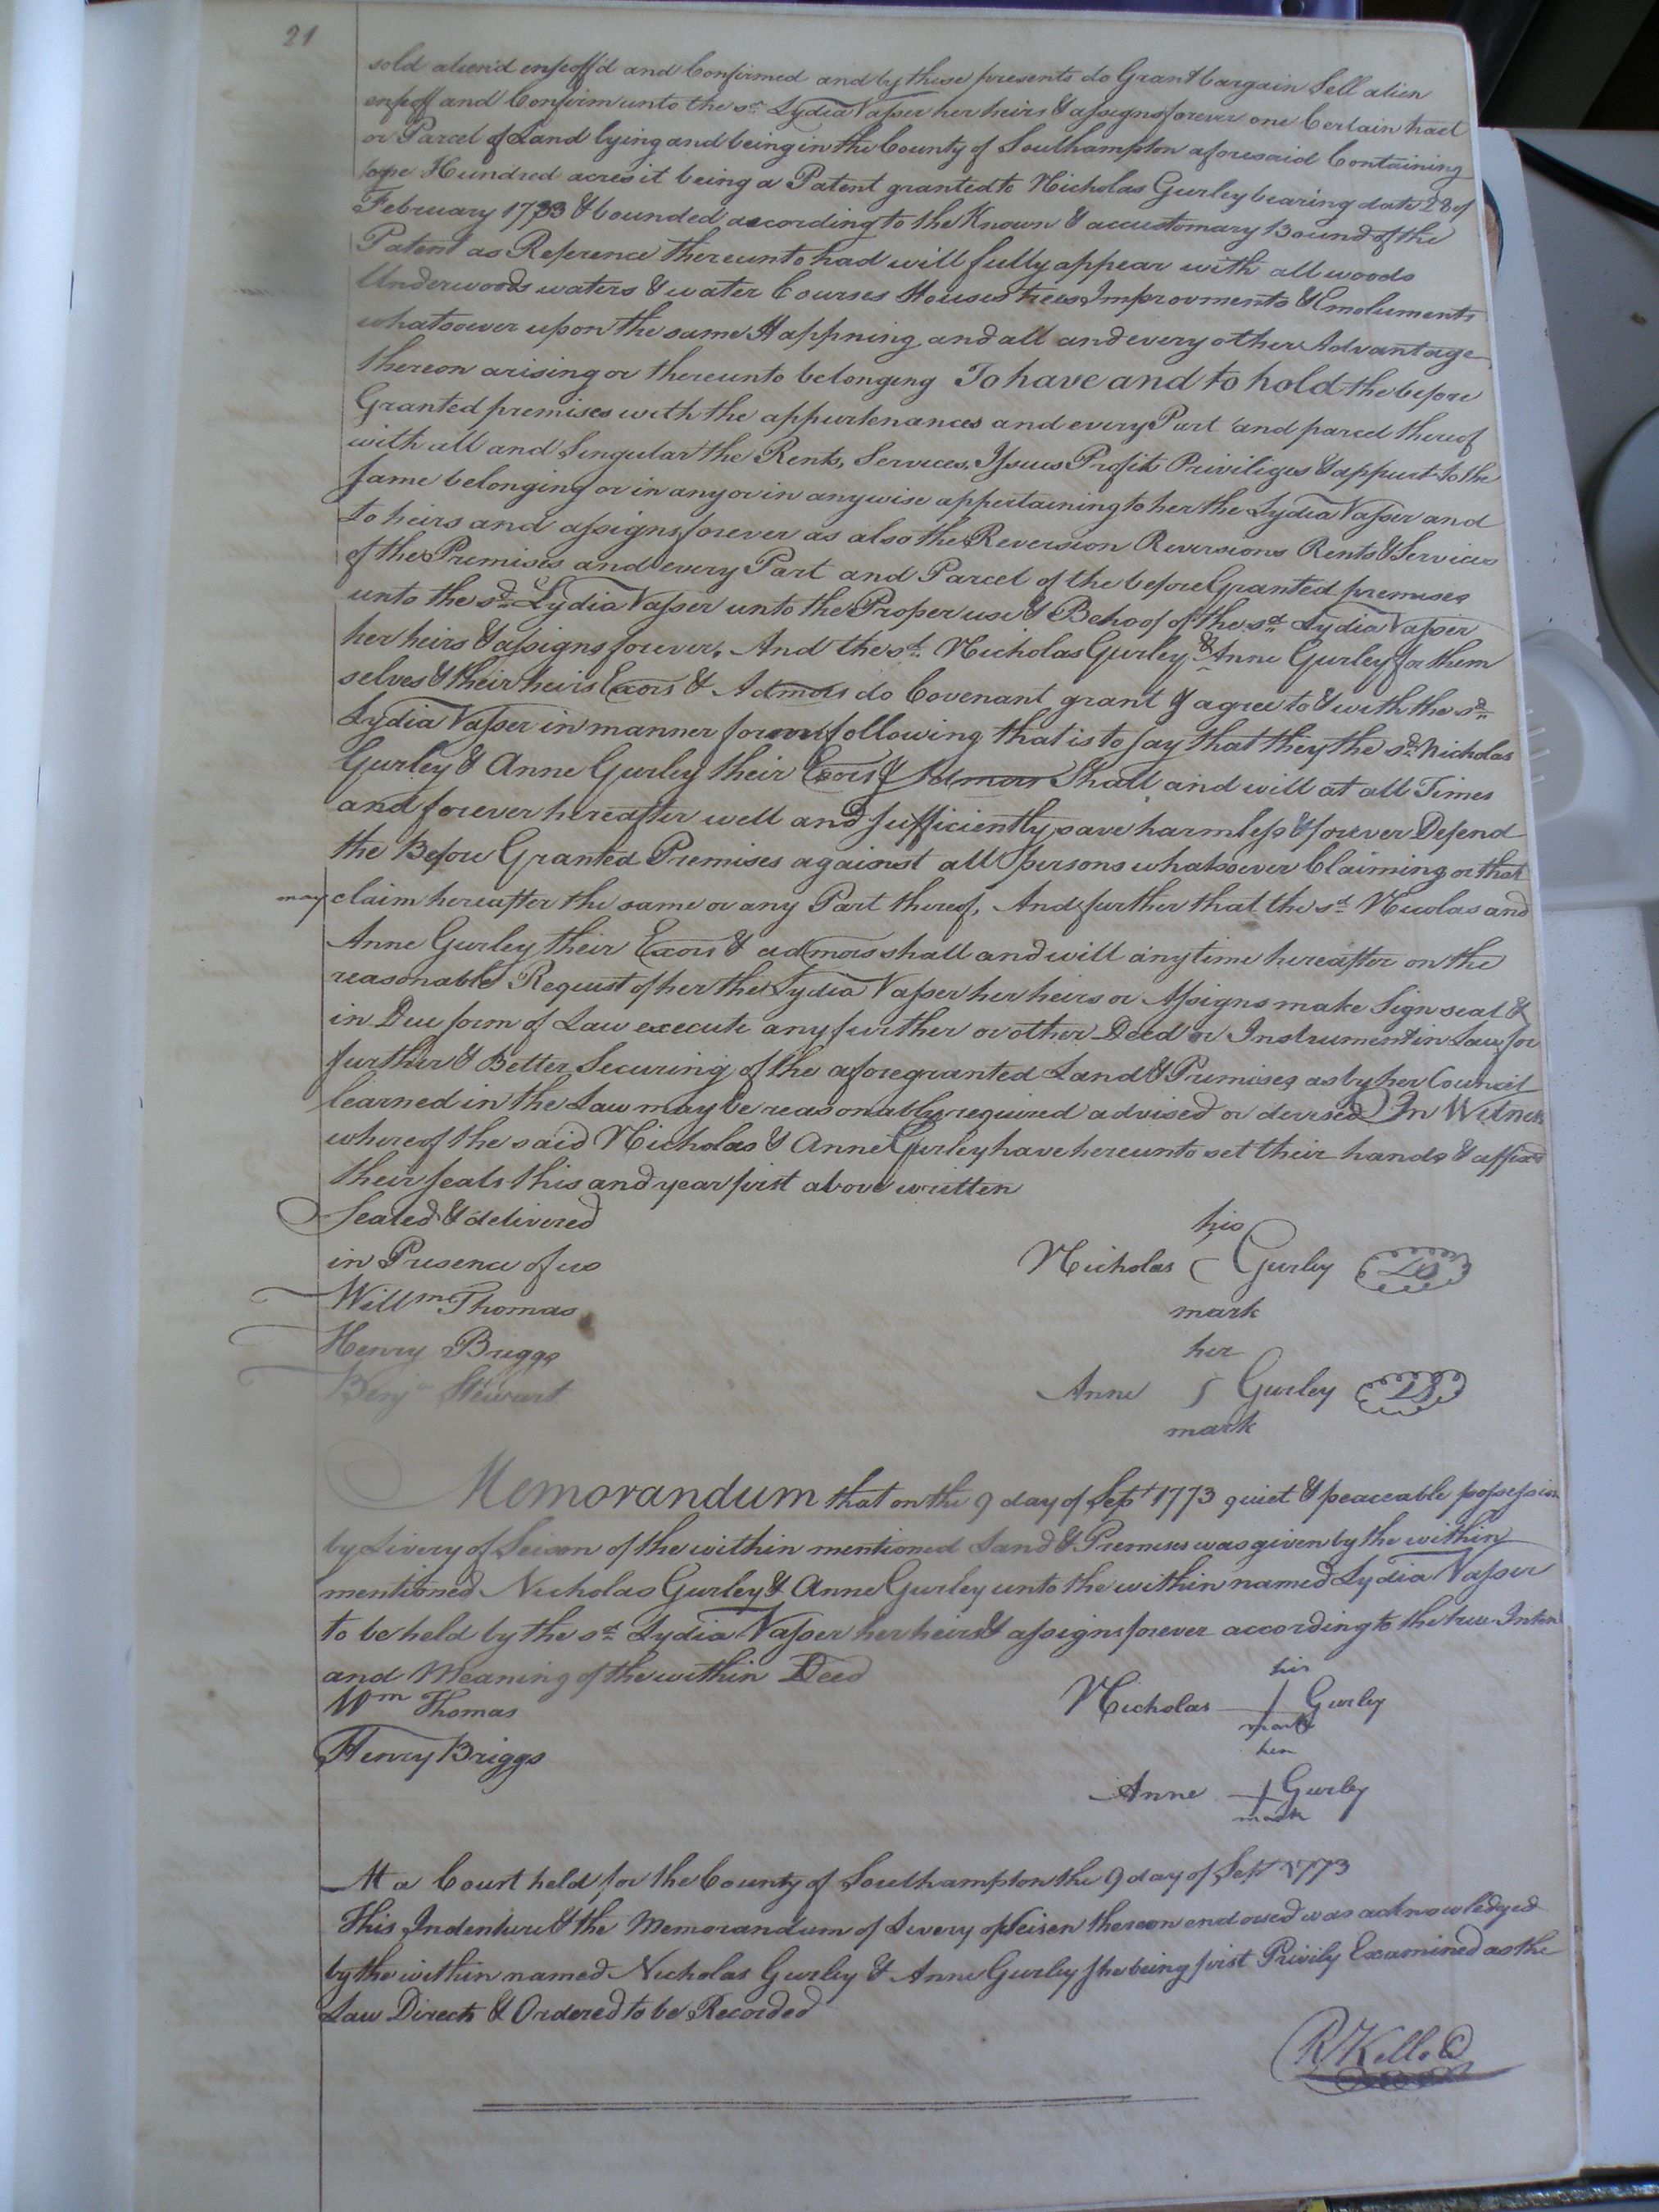 21
sold alien'd enfeoff'd and Confirmed and by these presents do Grant bargain Sell alien
enfeoff and Confirm unto the sd. Lydia Vasser her heirs & assigns forever one Certain tract
or Parcel of Land lying and being in the County of Southampton aforesaid Containing
one Hundred acres it being a Patent granted to Nicholas Gurley bearing date 28 of
February 1733 & bounded according to the Known & accustomary Bound of the
Patent as Reference thereunto had will fully appear with all woods
Underwoods waters & water Courses Houses trees Improvments & Emoluments
whatsoever upon the same Happning and all and every other Advantage
thereon arising or thereunto belonging To have and to hold the before
Granted premises with the appurtenances and every Part and parcel thereof
with all and Singular the Rents, Services, Issues Profits Priviliges & appurt to the
same belonging or in any or in anywise appertaining to her the Lydia Vasser and
to heirs and assigns forever as also the Reversion Reversions Rents & Services
of the Premises and every Part and Parcel of the before Granted premises
unto the sd. Lydia Vasser unto the Proper use & Behoof of the sd. Lydia Vasser
her heirs & assigns forever, And the sd. Nicholas Gurley & Anne Gurley for them
selves & their heirs Exors & Admors do Covenant grant & agree to & with the sd.
Lydia Vasser in manner form following that is to say that they the sd. Nicholas
Gurley & Anne Gurley their Exors & Admors Shall and will at all Times
and forever hereafter well and sufficiently save harmless & forever Defend
the Before Granted Premises against all persons whatsoever Claiming or that
may claim hereafter the same or any Part thereof, And further that the sd. Nicolas and
Anne Gurley their Exors & admors shall and will anytime hereafter on the
reasonable Request of her the Lydia Vasser her heirs or Assigns make Sign seal &
in Due form of Law execute any further or other Deed or Instrument in Law for
further & Better Securing of the aforegranted Land & Premises as by her Council
learned in the Law may be reasonably required advised or devised In Witness
whereof the said Nicholas & Anne Gurley have hereunto set their hands & affixed
their seals this and year first above written
Sealed & delivered his
in Presence of us Nicholas C Gurley LS
Willm Thomas mark
Henry Briggs her
Benja Stewart Anne Gurley LS
mark
Memorandum that on the 9 day of Sept 1773 quiet & peaceable possession
by Livery of Seison of the within mentioned Land & Premises was given by the within
mentioned Nicholas Gurley & Anne Gurley unto the within named Lydia Vasser
to be held by the sd. Lydia Vasser her heirs & assigns forever according to the true Inten
and Meaning of the within Deed his
Wm Thomas Nicholas + Gurley
mark
Henry Briggs her
Anne + Gurley
mark
At a Court held for the County of Southampton the 9 day of Sept 1773
This Indenture & the Memorandum of Livery of Seisen thereon endorsed was acknowledged
by the within named Nicholas Gurley & Anne Gurley she being first Privily Examined as the
Law Directs & Ordered to be Recorded
R Kello C